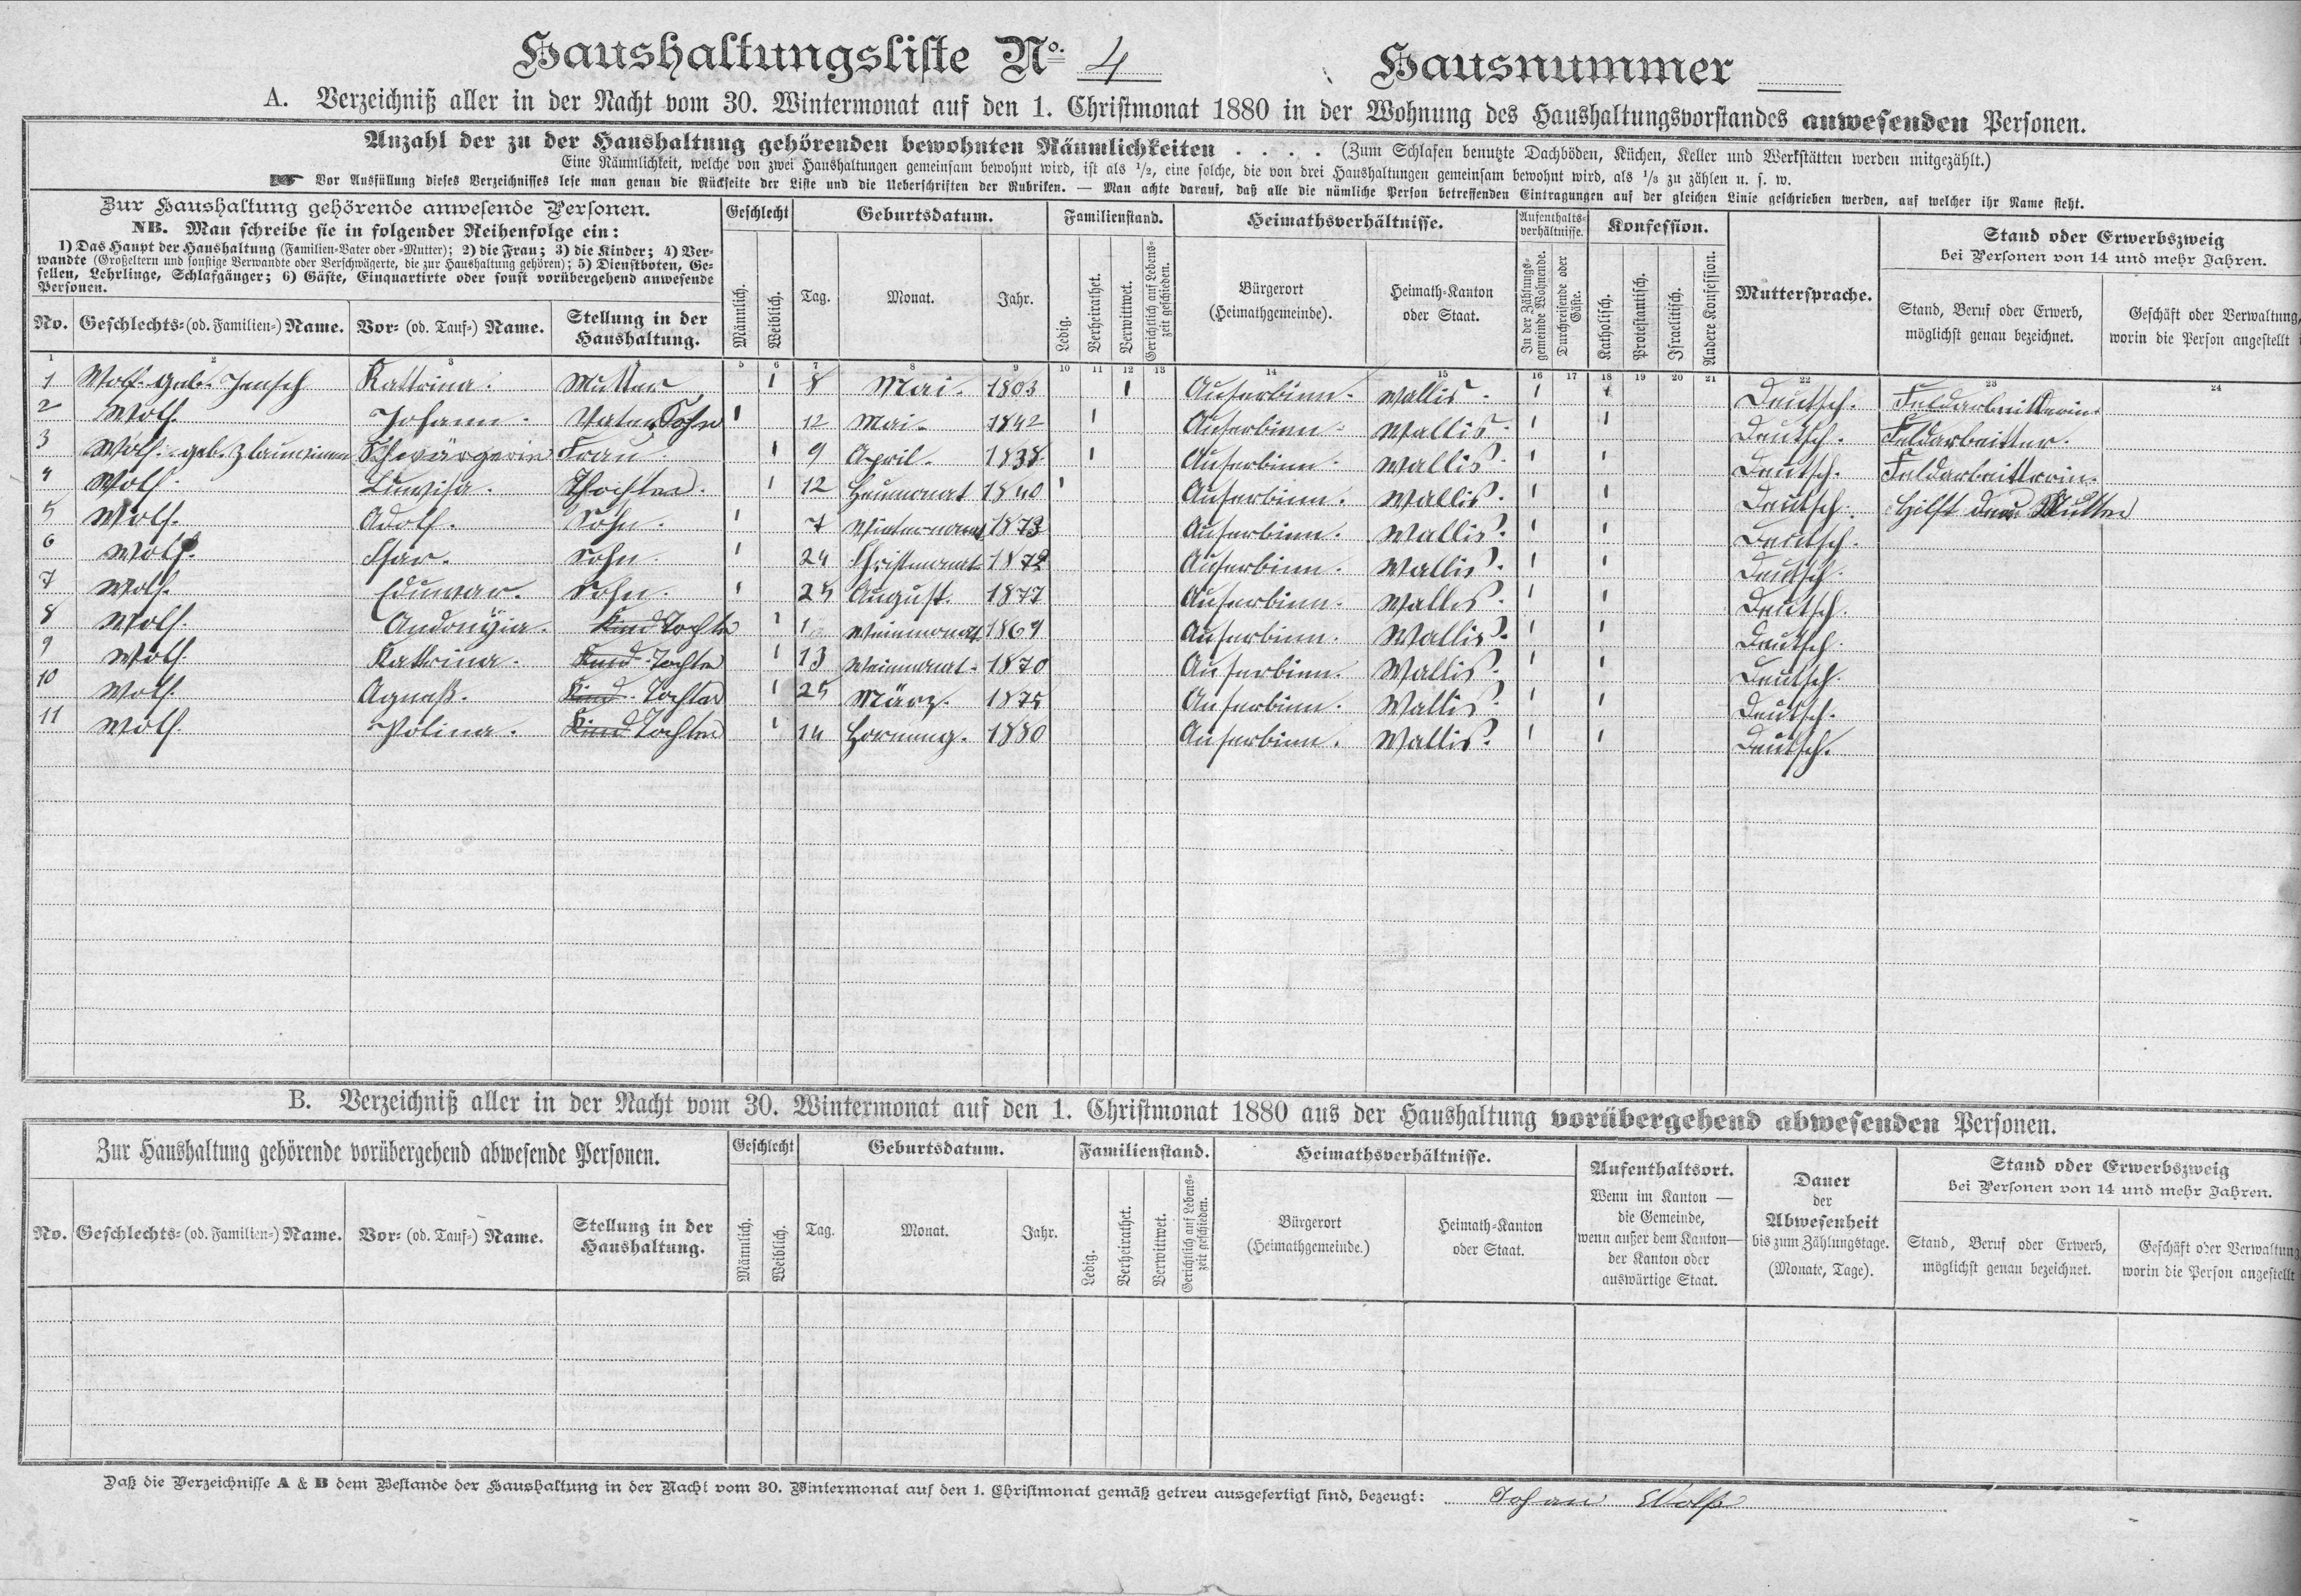 Haushaltungsliste No. 4 Hausnummer
A. Verzeichniß aller in der Nacht vom 30. Wintermonat auf den 1. Christmonat 1880 in der Wohnung des Haushaltungsvorstandes anwesenden Personen.
Anzahl der zu der Haushaltung gehörenden bewohnten Räumlichkeiten . . . . (Zum Schlafen benutzte Dachböden, Küchen, Keller und Werkstätten werden mitgezählt.)
Eine Räumlichkeit, welche von zwei Haushaltungen gemeinsam bewohnt wird, ist als 1/2, eine solche, die von drei Haushaltungen gemeinsam bewohnt wird, als 1/3 zu zählen u. s. w.
☞ Vor Ausfüllung dieses Verzeichnisses lese man genau die Rückseite der Liste und die Ueberschriften der Rubriken. — Man achte darauf, daß alle die nämliche Person betreffenden Eintragungen auf der gleichen Linie geschrieben werden, auf welcher ihr Name steht.
Zur Haushaltung gehörende anwesende Personen.
NB. Man schreibe sie in folgender Reihenfolge ein:
1) Das Haupt der Haushaltung (Familien-Vater oder -Mutter); 2) die Frau; 3) die Kinder; 4) Ver-
wandte (Großeltern und sonstige Verwandte oder Verschwägerte, die zur Haushaltung gehören); 5) Dienstboten, Ge-
sellen, Lehrlinge, Schlafgänger; 6) Gäste, Einquartirte oder sonst vorübergehend anwesende
Personen.
No. Geschlechts- (od. Familien-) Name. Vor- (od. Tauf-) Name. Stellung in der Haushaltung.
Geschlecht
Männlich. Weiblich.
Geburtsdatum.
Tag. Monat. Jahr.
Familienstand.
Ledig. Verheirathet. Verwittwet. Gerichtlich auf Lebenszeit geschieden.
Heimathsverhältnisse.
Bürgerort (Heimathgemeinde). Heimath-Kanton oder Staat.
Aufenthaltsverhältnisse.
In der Zählungsgemeinde Wohnende. Durchreisende oder Gäste.
Konfession.
Katholisch. Protestantisch. Israelitisch. Andere Konfession.
Muttersprache.
Stand oder Erwerbszweig
bei Personen von 14 und mehr Jahren.
Stand, Beruf oder Erwerb, möglichst genau bezeichnet. Geschäft oder Verwaltung, worin die Person angestellt
1 2 3 4 5 6 7 8 9 10 11 12 13 14 15 16 17 18 19 20 21 22 23 24
1 Wolf. geb. Jensch Kattrina. Mutter 1 8 Mai. 1803 1 Auserbinn. Wallis. 1 1 Deutsch. Feldarbeitterin.
2 Wolf. Johann. Vater Sohn 1 12 Mai. 1842 1 Auserbinn. Wallis. 1 1 Deutsch. Feldarbeitter.
3 Wolf. geb. Frau. 1 9 April. 1838 1 Auserbinn. Wallis. 1 1 Deutsch. Feldarbeitterin.
4 Wolf. Luwisa. Thochter. 1 12 Heumonat 1840 1 Auserbinn. Wallis. 1 1 Deutsch. Hilft der Mutter
5 Wolf. Adolf. Sohn. 1 7 Wintermonat 1873 Auserbinn. Wallis. 1 1 Deutsch.
6 Wolf. Sohn. 1 24 Christmonat Auserbinn. Wallis. 1 1 Deutsch.
7 Wolf. Eduwar. Sohn. 1 25 August. 1877 Auserbinn. Wallis. 1 1 Deutsch.
8 Wolf. Andonÿia. Kind Tochter 1 1 Weinmonat. 1869 Auserbinn. Wallis. 1 1 Deutsch.
9 Wolf. Kattrina. Kind Tochter 1 13 Weinmonat. 1870 Auserbinn. Wallis. 1 1 Deutsch.
10 Wolf. Agneß. Kind Tochter 1 25 März. 1875 Auserbinn. Wallis. 1 1 Deutsch.
11 Wolf. Polina. Kind Tochter 1 14 Hornung. 1880 Auserbinn. Wallis. 1 1 Deutsch.
B. Verzeichniß aller in der Nacht vom 30. Wintermonat auf den 1. Christmonat 1880 aus der Haushaltung vorübergehend abwesenden Personen.
Zur Haushaltung gehörende vorübergehend abwesende Personen.
No. Geschlechts- (od. Familien-) Name. Vor- (od. Tauf-) Name. Stellung in der Haushaltung.
Geschlecht
Männlich. Weiblich.
Geburtsdatum.
Tag. Monat. Jahr.
Familienstand.
Ledig. Verheirathet. Verwittwet. Gerichtlich auf Lebenszeit geschieden.
Heimathsverhältnisse.
Bürgerort (Heimathgemeinde.) Heimath-Kanton oder Staat.
Aufenthaltsort.
Wenn im Kanton —
die Gemeinde,
wenn außer dem Kanton—
der Kanton oder
auswärtige Staat.
Dauer
der
Abwesenheit
bis zum Zählungstage.
(Monate, Tage).
Stand oder Erwerbszweig
bei Personen von 14 und mehr Jahren.
Stand, Beruf oder Erwerb, möglichst genau bezeichnet. Geschäft oder Verwaltung worin die Person angestellt
Daß die Verzeichnisse A & B dem Bestande der Haushaltung in der Nacht vom 30. Wintermonat auf den 1. Christmonat gemäß getreu ausgefertigt sind, bezeugt: Johan Wolf